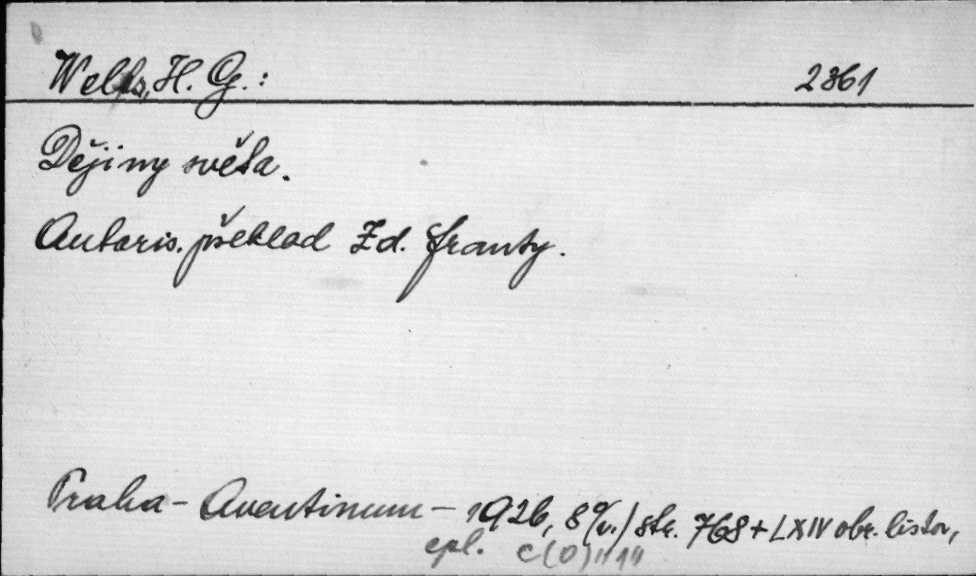 Wells, H. G.: 2361
Dějiny světa.
Autoris. překlad Zd. Franty.
Praha - Aventinum - 1926, 8°(v.) str. 768 + LXIV obr. listov,
cpl. C(0)